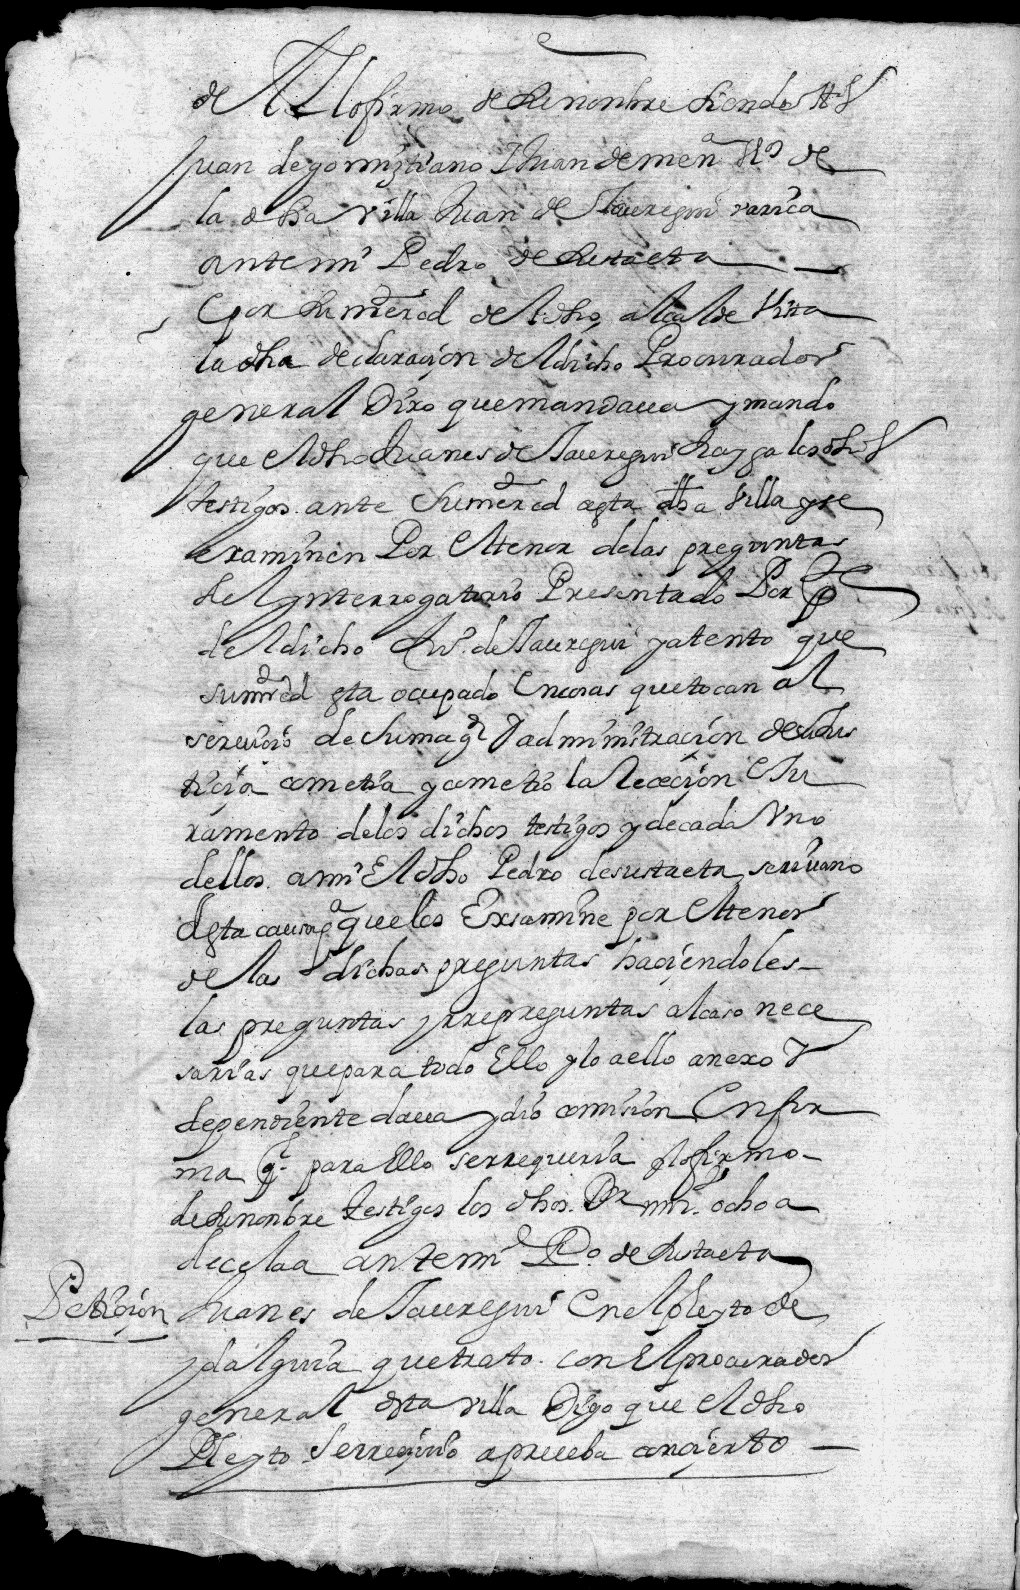 de El lo firmo de su nonbre siendo tt.os
Juan de gomiztiano Juan de men.a V.os de
la dha villa Juan de Jauregui varica
ante mi Pedro de sustaeta
E por su md.ed del dho alcalde Vista
la dha declaraçion del dicho Procurador
general Dixo que mandaua y mando
que el dho Juanes de Jauregui trayga los dhos
testigos ante su merced a esta dha Villa y se
examinen Por el tenor de las preguntas
del ynterrogatorio Presentado Por p.te
del dicho Ju.o de Jauregui y atento que
su mrd esta ocupado En cosas que tocan al
seruiçio de su mag.d y administraçion de su Jus
tiçia cometia y cometio la Reçeçion E Ju
ramento de los dichos testigos y de cada Vno
dellos a mi El dho Pedro de sustaeta scriuano
desta causa p.a que los Exsamine por el tenor
de las dichas preguntas haçiendoles
las preguntas y rrepreguntas al caso nece
sarias que para todo Ello y lo a ello anexo Y
dependiente daua y dio comision En for
ma q.l para Ello se rrequeria y lo firmo
de su nonbre testigos los dhos. mrn. ochoa
de celaa ante mi P.o de sustaeta
Petiçion Juanes de Jauregui En el pleyto de
ydalguia que trato con El procurador
general desta villa Digo que el dho
Pleyto se rreçiuio a prueba con çierto